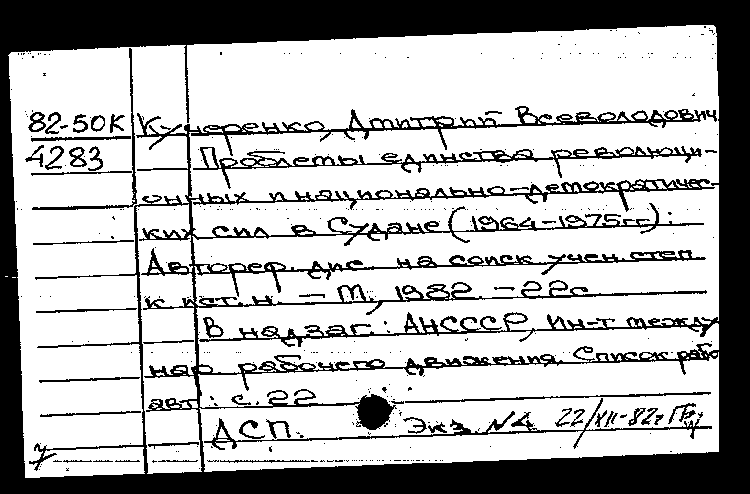 82-50К Кучеренко, Дмитрий Всеволодович
4283 Проблемы единства революци-
онных и национально-демократичес-
ких сил в Судане (1964-1975гг):
Автореф. дис. на соиск учен. степ.
к ист. н. - М., 1982. - 22с
В надзаг.: АН СССР, Ин-т между
нар рабочего движения. Список рабо
авт: с. 22
ДСП. Экз. №4 22/XII-82г